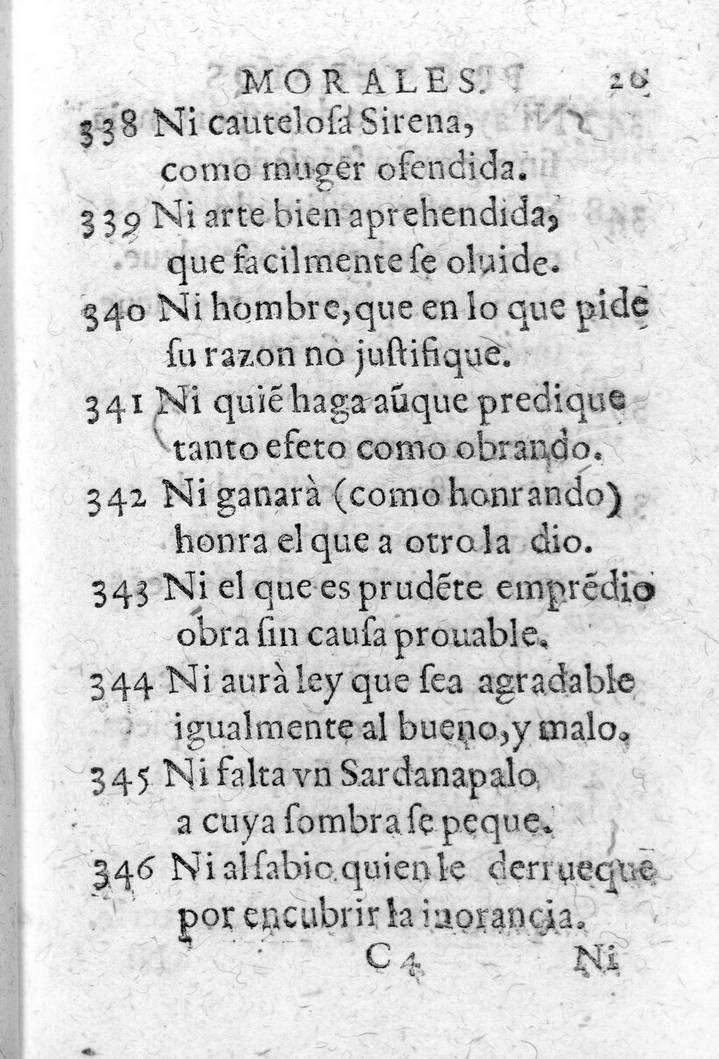 MORALES. 20
338 Ni cauteloſa Sirena,
como muger ofendida.
339 Ni arte bien aprehendida,
que facilmente ſe oluide.
340 Ni hombre, que en lo que pide
ſu razon no juſtifique.
341 Ni quiẽ haga aũque predique
tanto efeto como obrando.
342 Ni ganarà (como honrando)
honra el que a otro la dio.
343 Ni el que es prudẽte emprẽdio
obra ſin cauſa prouable.
344 Ni aurà ley que ſea agradable
igualmente al bueno, y malo.
345 Ni falta vn Sardanapalo
a cuya ſombra ſe peque.
346 Ni al ſabio quien le derrueque
por encubrir ſa inorancia.
C 4 Ni